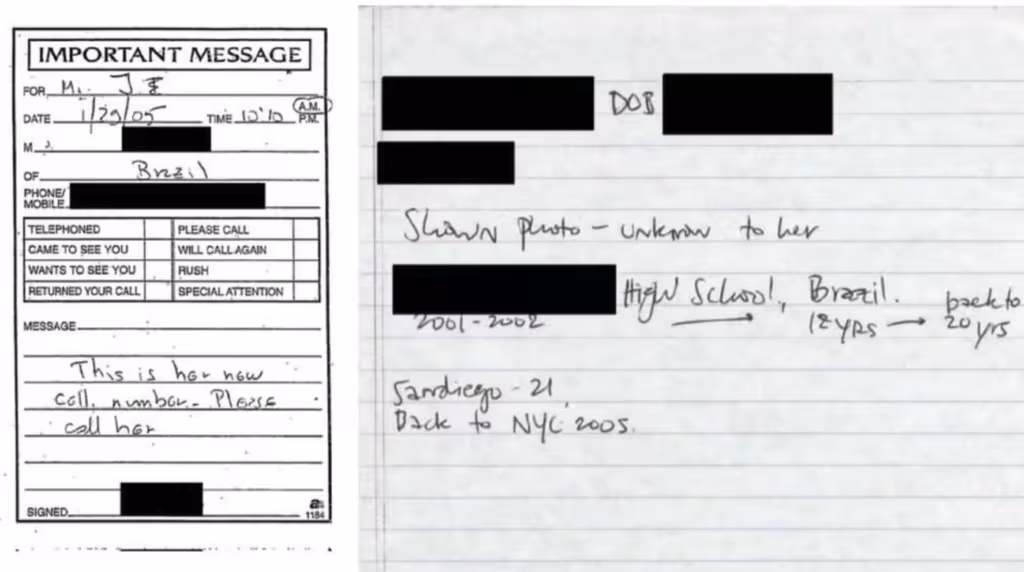 IMPORTANT MESSAGE
FOR Mr. JE
DATE 1/29/05 TIME 10:10 A.M.
P.M.
M
OF Brazil
PHONE/
MOBILE
TELEPHONED PLEASE CALL
CAME TO SEE YOU WILL CALL AGAIN
WANTS TO SEE YOU RUSH
RETURNED YOUR CALL SPECIAL ATTENTION
MESSAGE
This is her new
cell. number. Please
call her
SIGNED
1184
DOB
Shown photo - unknown to her
High School, Brazil. back to
2001-2002 → 12 yrs → 20 yrs
Sandiego - 21
Back to NYC 2005.